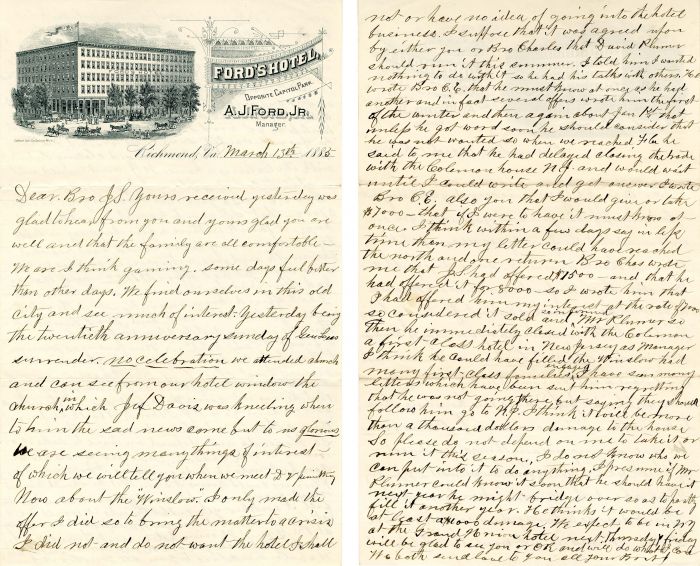 FORD'S HOTEL,
OPPOSITE CAPITOL PARK
A.J. FORD, JR.
Manager.
Richmond, Va. March 13th 1885
Dear Bro J.S. Yours received yesterday was
glad to hear from you and yours glad you are
well and that the family are all comfortable —
We are I think gaining. some days feel better
than other days. We find ourselves in this old
city and see much of interest. Yesterday being
the twentieth anniversary Sunday of Gen Lees
surrender. no celebration we attended church
and can see from our hotel window the
church in which Jef Davis was kneeling when
to him the sad news come but to us glorious
We are seeing many things of interest —
of which we will tell you when we meet
Now about the Winslow. I only made the
offer I did so to bring the matter to a crisis
I did not and do not want the hotel I shall
not or have no idea of going into the hotel
business. I suppose that it was agreed upon
by either you or Bro Charles that David Klumer
should run it this summer. I told him I wanted
nothing to do with it so he had his talks with others. He
wrote Bro C.E. that he must know at once as he had
another and in fact several offers wrote him the first
of the winter and then again about Jan 1st that
unless he got word soon he should consider that
he was not wanted so when we reached Fla he
said to me that he had delayed closing the trade
with the Coleman house N.J. and would wait
until I could write and get answer I wrote
Bro C.E. also you that I would give or take
$7000 — that if I were to have it must know at
once. I think within a few days say in less
time than my letter could have reached
the north and one return Bro Chas wrote
me that J.S. had offered $7500 — and that he
had offered it for 8000 — so I wrote him that
I had offered him my interest at the rate of 7000
so considered it sold and Mr Klumer so
then he immediately closed with the Coleman
a first class hotel in New Jersey as Manager
I think he could have filled the Winslow had
many first class families engaged, I have seen many
letters which have been sent him regretting
that he was not going there, but saying they should
follow him go to N.J. I think it will be more
than a thousand dollars damage to the house
So please do not depend on me to take it or
run it this season. I do not know who we
can put into it to do anything. I presume if Mr
Klumer could know it soon that he should have it
next year he might bridge over so as to partly
fill it another year. He thinks it would be
at least damage. We expect to be in
at the Grand Union hotel next Thursday or friday
will be glad to see you or and will do what I can
We both send love to you all your Bro